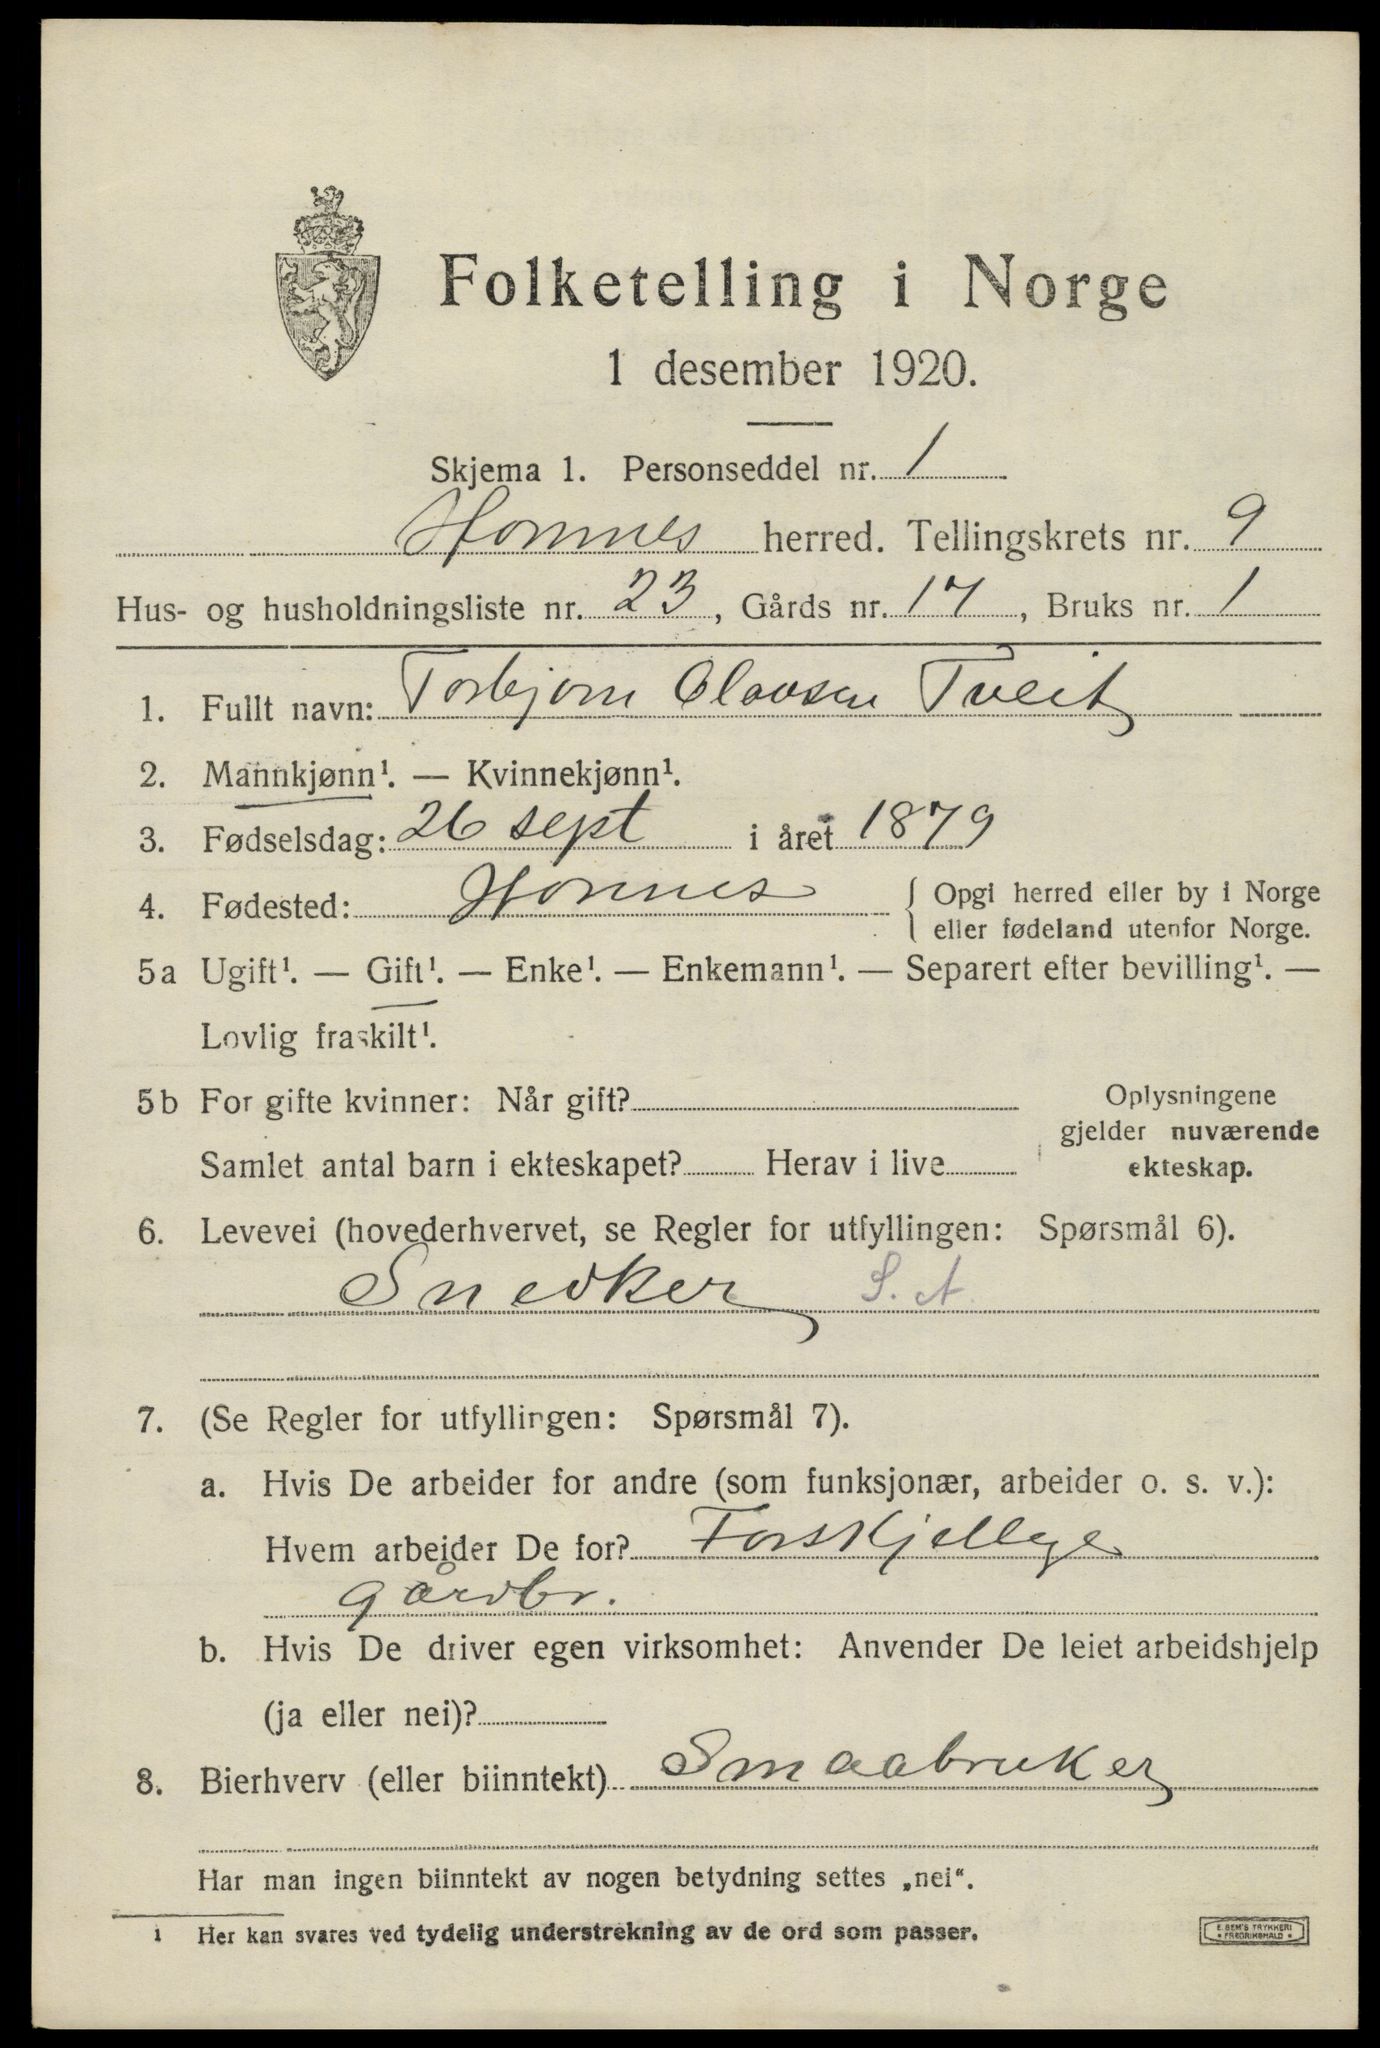 Folketelling i Norge
1 desember 1920.
Skjema 1. Personseddel nr. 1
Hornnes herred. Tellingskrets nr. 9
Hus- og husholdningsliste nr. 23, Gårds nr. 17, Bruks nr. 1
1. Fullt navn: Torbjørn Olavsen Tveit
2. Mannkjønn¹. — Kvinnekjønn¹.
3. Fødselsdag: 26 sept i året 1879
4. Fødested: Hornnes { Opgi herred eller by i Norge
eller fødeland utenfor Norge.
5a Ugift¹. — Gift¹. — Enke¹. — Enkemann¹. — Separert efter bevilling¹. —
Lovlig fraskilt¹.
5b For gifte kvinner: Når gift?
Samlet antal barn i ekteskapet? Herav i live
Oplysningene
gjelder nuværende
ekteskap.
6. Levevei (hovederhvervet, se Regler for utfyllingen: Spørsmål 6).
Snedker S. A.
7. (Se Regler for utfyllingen: Spørsmål 7).
a. Hvis De arbeider for andre (som funksjonær, arbeider o. s. v.):
Hvem arbeider De for? Forskjellige
gårdbr.
b. Hvis De driver egen virksomhet: Anvender De leiet arbeidshjelp
(ja eller nei)?
8. Bierhverv (eller biinntekt) Smaabruker
Har man ingen biinntekt av nogen betydning settes „nei“.
1 Her kan svares ved tydelig understrekning av de ord som passer.
E. SEM'S TRYKKERI
• FREDRIKSHALD •